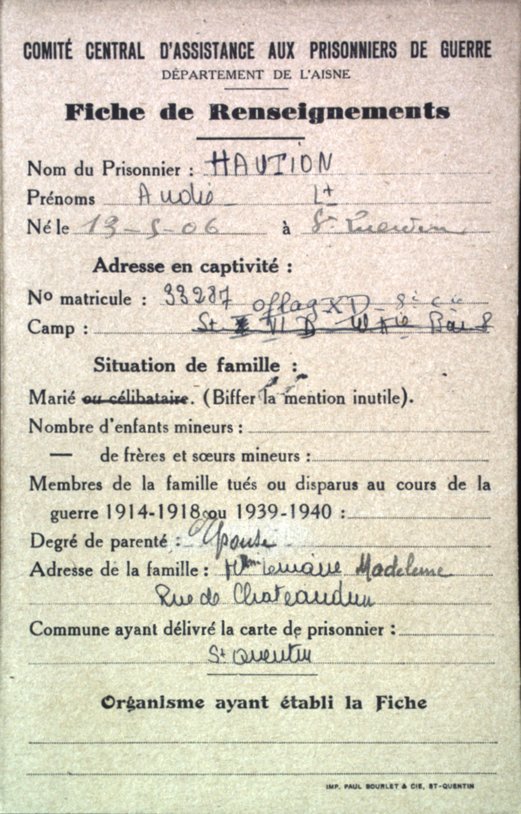 COMITÉ CENTRAL D'ASSISTANCE AUX PRISONNIERS DE GUERRE
DÉPARTEMENT DE L'AISNE
Fiche de Renseignements
Nom du Prisonnier : HAUTION
Prénoms Lt
Né le 19-5-06 à St Quentin
Adresse en captivité :
No matricule : 33287 oflag XD
Camp : St VI D
Situation de famille :
Marié ou célibataire. (Biffer la mention inutile).
Nombre d'enfants mineurs :
— de frères et sœurs mineurs :
Membres de la famille tués ou disparus au cours de la
guerre 1914-1918 ou 1939-1940 :
Degré de parenté : Epouse
Adresse de la famille : Mme Madeleine
Rue de Chateaudun
Commune ayant délivré la carte de prisonnier :
St Quentin
Organisme ayant établi la Fiche
IMP. PAUL BOURLET & CIE, ST-QUENTIN